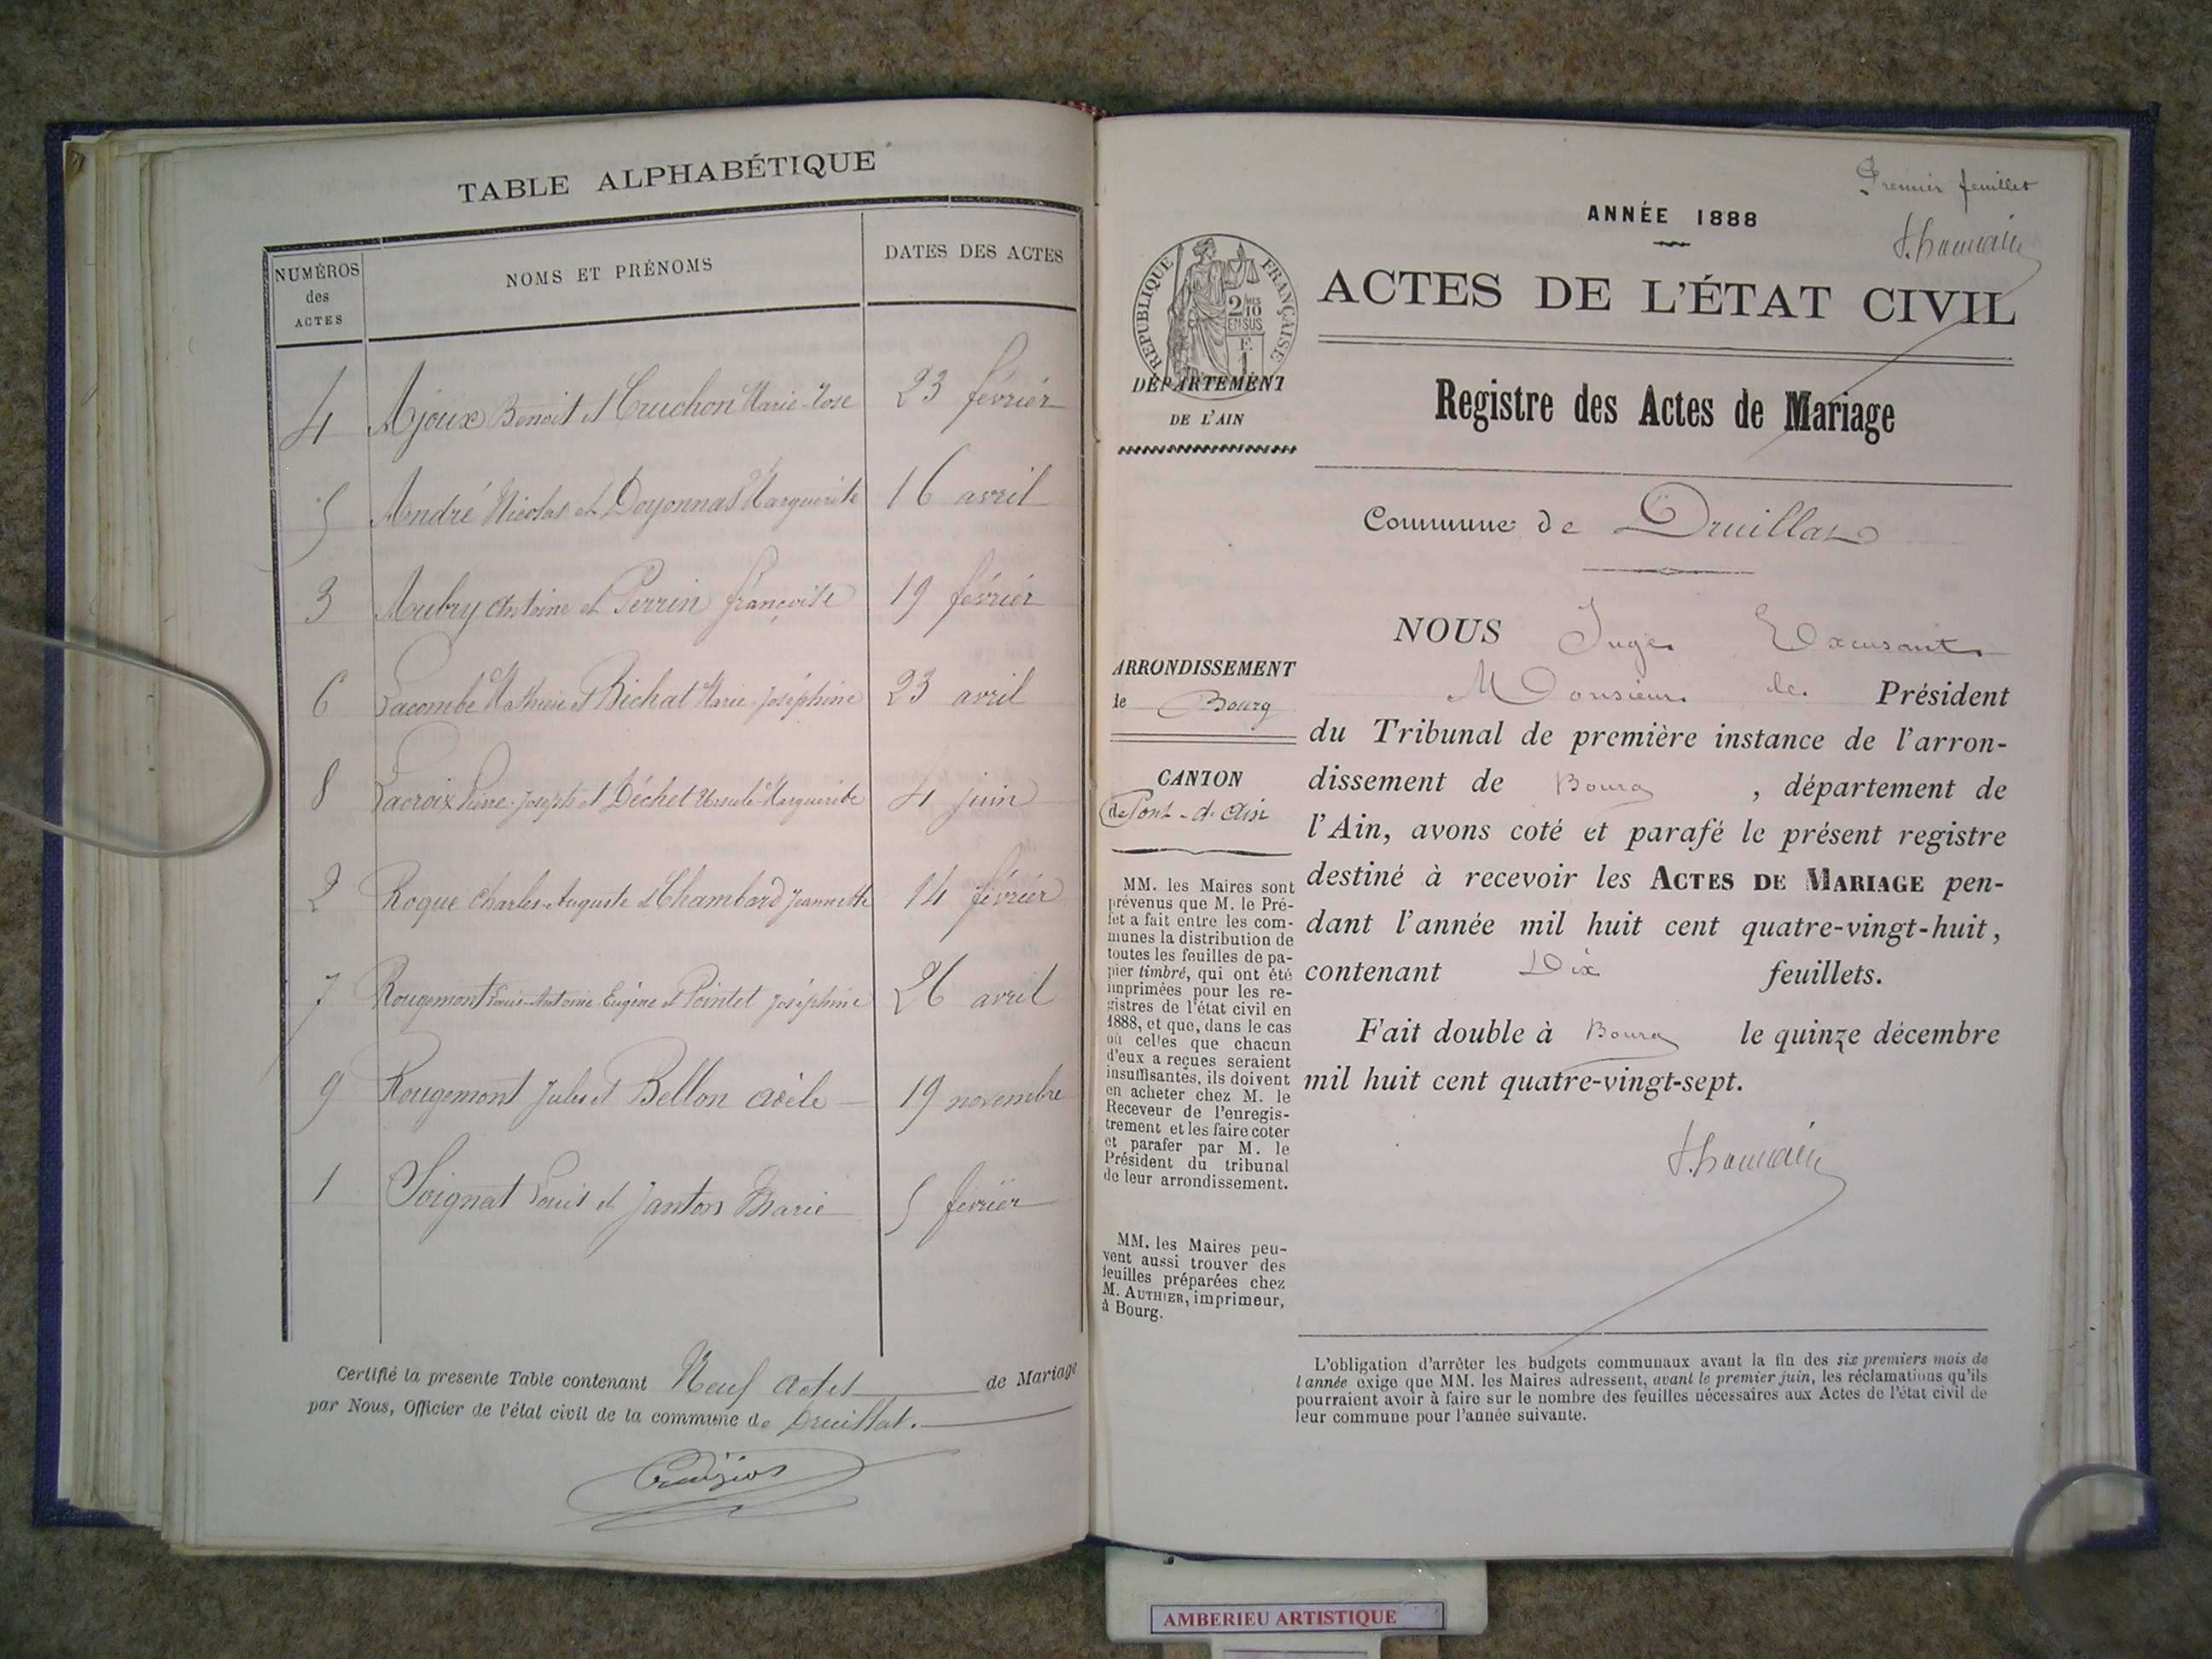 TABLE ALPHABÉTIQUE
NUMÉROS des ACTES
NOMS ET PRÉNOMS
DATES DES ACTES
4 Ajoux Benoit et Cruchon Marie-Rose 23 février
5 André Nicolas et Doyonnas Marguerite 16 avril
3 Aubry Antoine et Perrin françoise 19 février
6 Lacombe Mathieu et Bichat Marie-Joséphine 23 avril
8 Lacroix Pierre-Joseph et Déchet Ursule-Marguerite 4 juin
2 Roque Charles-Auguste et Chambard Jeannette 14 février
7 Rougemont Louis-Antoine-Eugène et Pointet Joséphine 26 avril
9 Rougemont Jules et Bellon Adèle 19 novembre
1 Soignat Louis et Janton Marie 5 février
Certifié la presente Table contenant Neuf actes de Mariage
par Nous, Officier de l'état civil de la commune de Druillat.
Premier feuillet
ANNÉE 1888
RÉPUBLIQUE FRANÇAISE
2/10
EN SUS
F.
1
ACTES DE L'ÉTAT CIVIL
DÉPARTEMENT
DE L'AIN
Registre des Actes de Mariage
Commune de Druillat
ARRONDISSEMENT
de Bourg
CANTON
de Pont-d'Ain
MM. les Maires sont
prévenus que M. le Pré-
fet a fait entre les com-
munes la distribution de
toutes les feuilles de pa-
pier timbré, qui ont été
imprimées pour les re-
gistres de l'état civil en
1888, et que, dans le cas
où celles que chacun
d'eux a reçues seraient
insuffisantes, ils doivent
en acheter chez M. le
Receveur de l'enregis-
trement et les faire coter
et parafer par M. le
Président du tribunal
de leur arrondissement.
MM. les Maires peu-
vent aussi trouver des
feuilles préparées chez
M. AUTHIER, imprimeur,
à Bourg.
NOUS Juge Excusant
Monsieur le Président
du Tribunal de première instance de l'arron-
dissement de Bourg, département de
l'Ain, avons coté et parafé le présent registre
destiné à recevoir les ACTES DE MARIAGE pen-
dant l'année mil huit cent quatre-vingt-huit,
contenant Dix feuillets.
Fait double à Bourg le quinze décembre
mil huit cent quatre-vingt-sept.
L'obligation d'arrêter les budgets communaux avant la fin des six premiers mois de
l'année exige que MM. les Maires adressent, avant le premier juin, les réclamations qu'ils
pourraient avoir à faire sur le nombre des feuilles nécessaires aux Actes de l'état civil de
leur commune pour l'année suivante.
AMBERIEU ARTISTIQUE